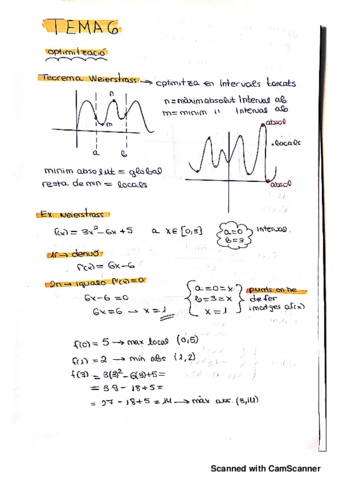 TEMA 6
optimització
Teorema Weierstrass → optimitza en intervals tancats
n = màxim absolut Interval ab
m = minim " Interval ab
n
m
a b
absol
locals
absol
minim absolut = global
resta de min = locals
Ex weierstrass
f(x) = 3x² - 6x + 5 a x ∈ [0,3] a=0 b=3 Interval
1r → derivo
f'(x) = 6x - 6
2n → igualo f'(x) = 0
6x - 6 = 0
6x = 6 → x = 1
a = 0 = x
b = 3 = x
x = 1
punts on he
de fer
imatges a f(x)
f(0) = 5 → max local (0,5)
f(1) = 2 → min abs (1,2)
f(3) = 3(3)² - 6(3) + 5 =
= 3·9 - 18 + 5 =
= 27 - 18 + 5 = 14 → màx abs. (3,14)
Scanned with CamScanner